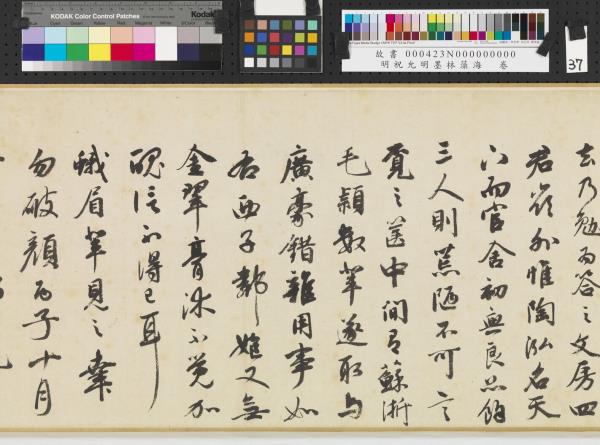 KODAK Color Control Patches
Kodak
故書 000423N000000000
明祝允明墨林藻海 卷
37
去乃勉為答之文房四
君 外惟陶泓名天
下而官舍初無良品餘
三人則荒陋不可言
覓之篋中間有蘇浙
毛穎數輩遂取與
廣豪錯雜用事如
右西子鄰 又無
金翠膏沐不覺加
醜 不得已耳
蛾眉輩見之幸
勿破顏丙子十月